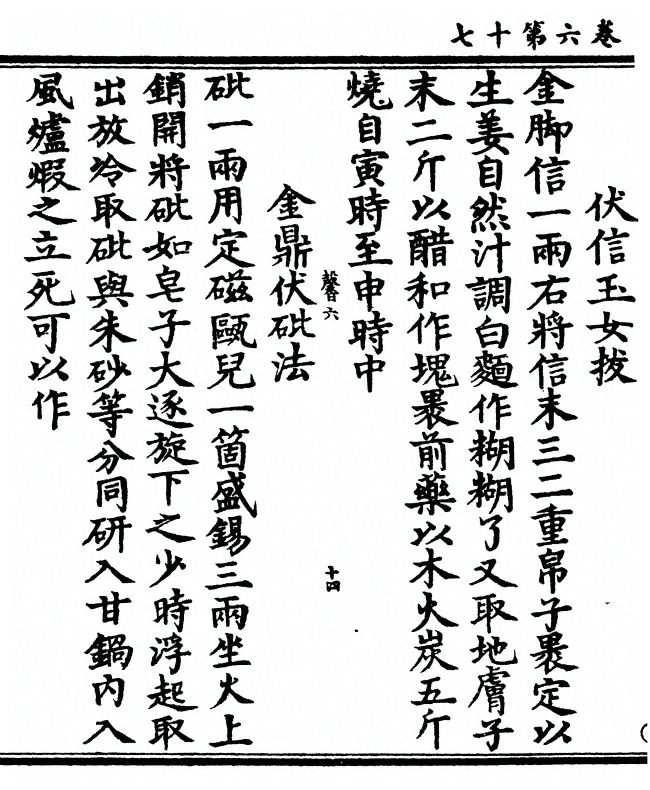 卷六第十七
伏信玉女拔
金脚信一兩右將信末三二重帛子裹定以
生姜自然汁調白麵作糊糊了又取地膚子
末二斤以醋和作塊裹前藥以木火炭五斤
燒自寅時至申時中
馨六
十四
金鼎伏砒法
砒一兩用定磁甌兒一箇盛錫三兩坐火上
銷開將砒如皂子大逐旋下之少時浮起取
出放冷取砒與朱砂等分同研入甘鍋內入
風爐煆之立死可以作